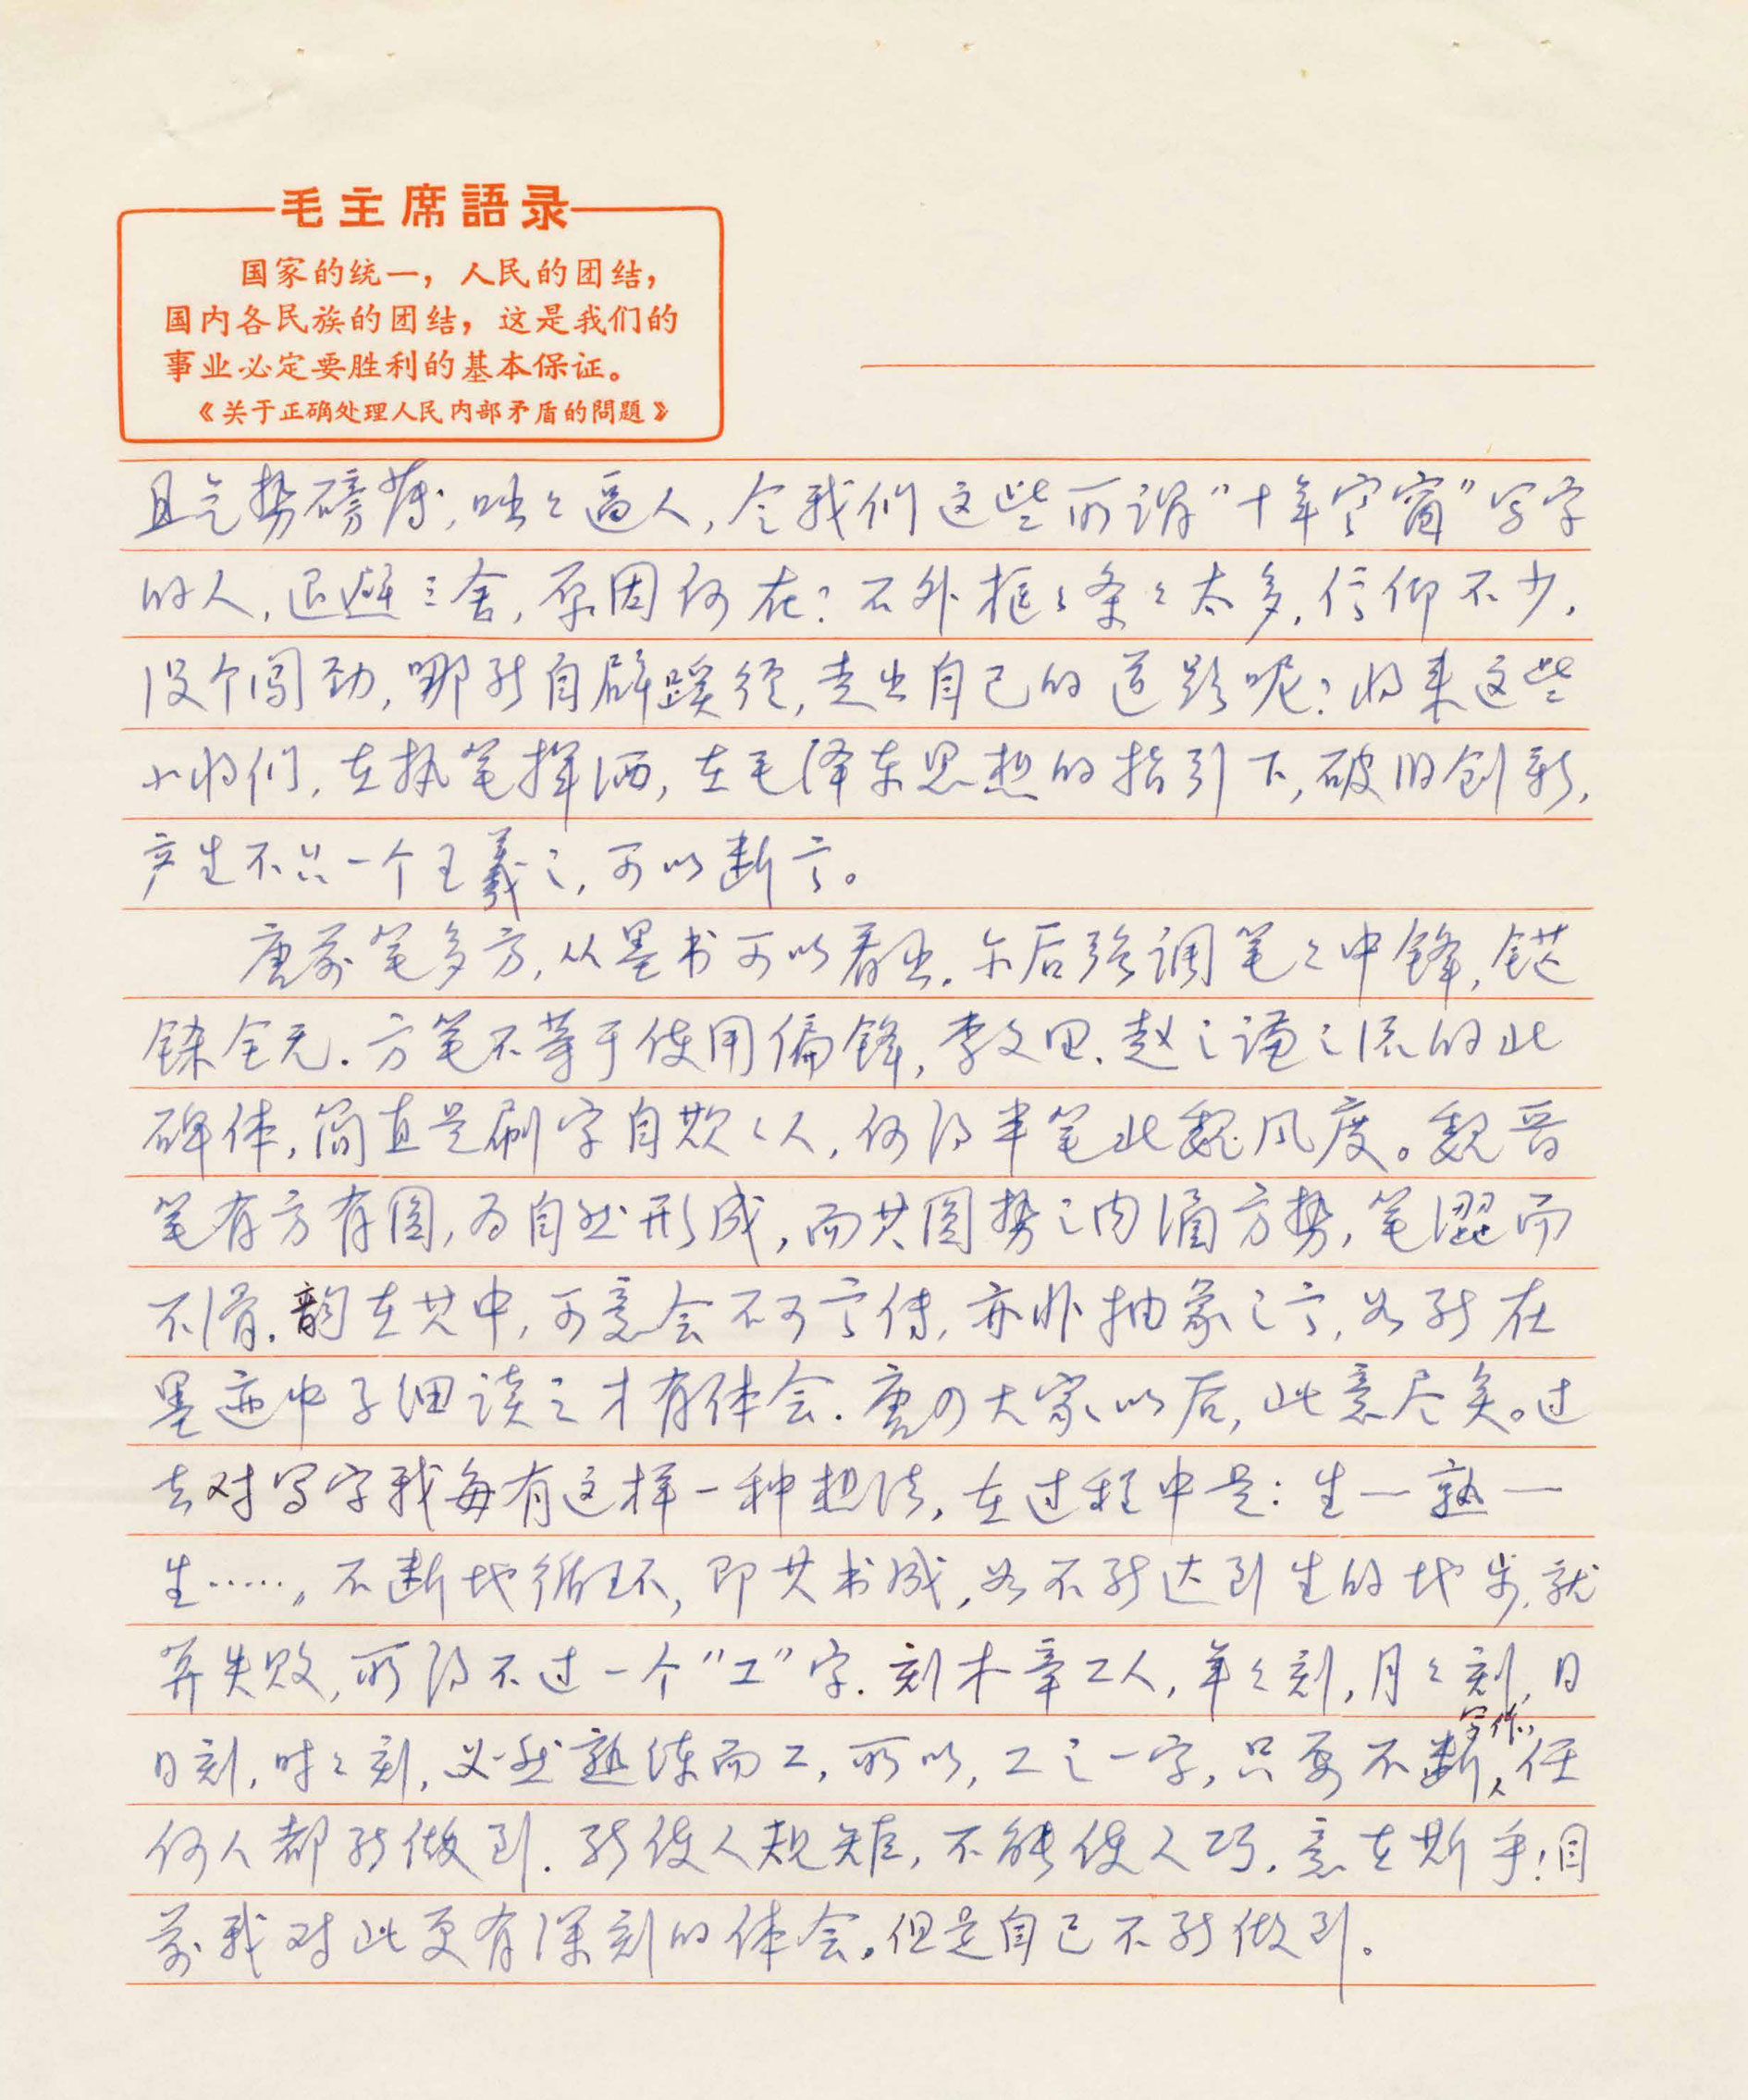 毛主席語录
国家的统一，人民的团结，
国内各民族的团结，这是我们的
事业必定要胜利的基本保证。
《关于正确处理人民内部矛盾的問題》
且气势磅薄，咄々逼人，令我们这些所谓“十年寒窗”写字
的人，退避三舍，原因何在？不外框々条々太多，信仰不少，
没个闯劲，哪能自辟蹊径，走出自己的道路呢？将来这些
小将们，在执笔挥洒，在毛泽东思想的指引下，破旧创新，
产生不只一个王羲之，可以断言。
唐前笔多方，从墨书可以看出。尔后强调笔々中锋，鋩
铩全无．方笔不等于使用偏锋，李文田、赵之谦之流的北
碑体，简直是刷字自欺々人，何得半笔北魏风度。魏晋
笔有方有圆，为自然形成，而其圆势之内涵方势，笔涩而
不滑．韵在其中，可意会不可言传，亦非抽象之言，必能在
墨迹中子细读之才有体会．唐四大家以后，此意尽矣。过
去对写字我每有这样一种想法，在过程中是：生—熟—
生……，不断地循环，即其书成，必不能达到生的地步，就
算失败，所得不过一个“工”字．刻木章工人，年々刻，月々刻，日
日刻，时々刻，必然熟练而工，所以，工之一字，只要不断写作，任
何人都能做到．能使人规矩，不能使人巧，意在斯乎！目
前我对此更有深刻的体会。但是自己不能做到。